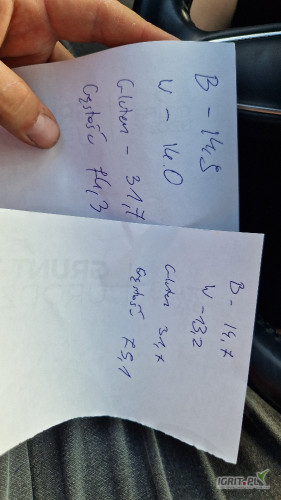 B - 14,5
W - 14.0
Gluten - 31,7
Gęstość 74,3
B - 14,7
W - 13,2
Gluten 31,7
Gęstość 75,1
GRUNT
IGRIT.PL